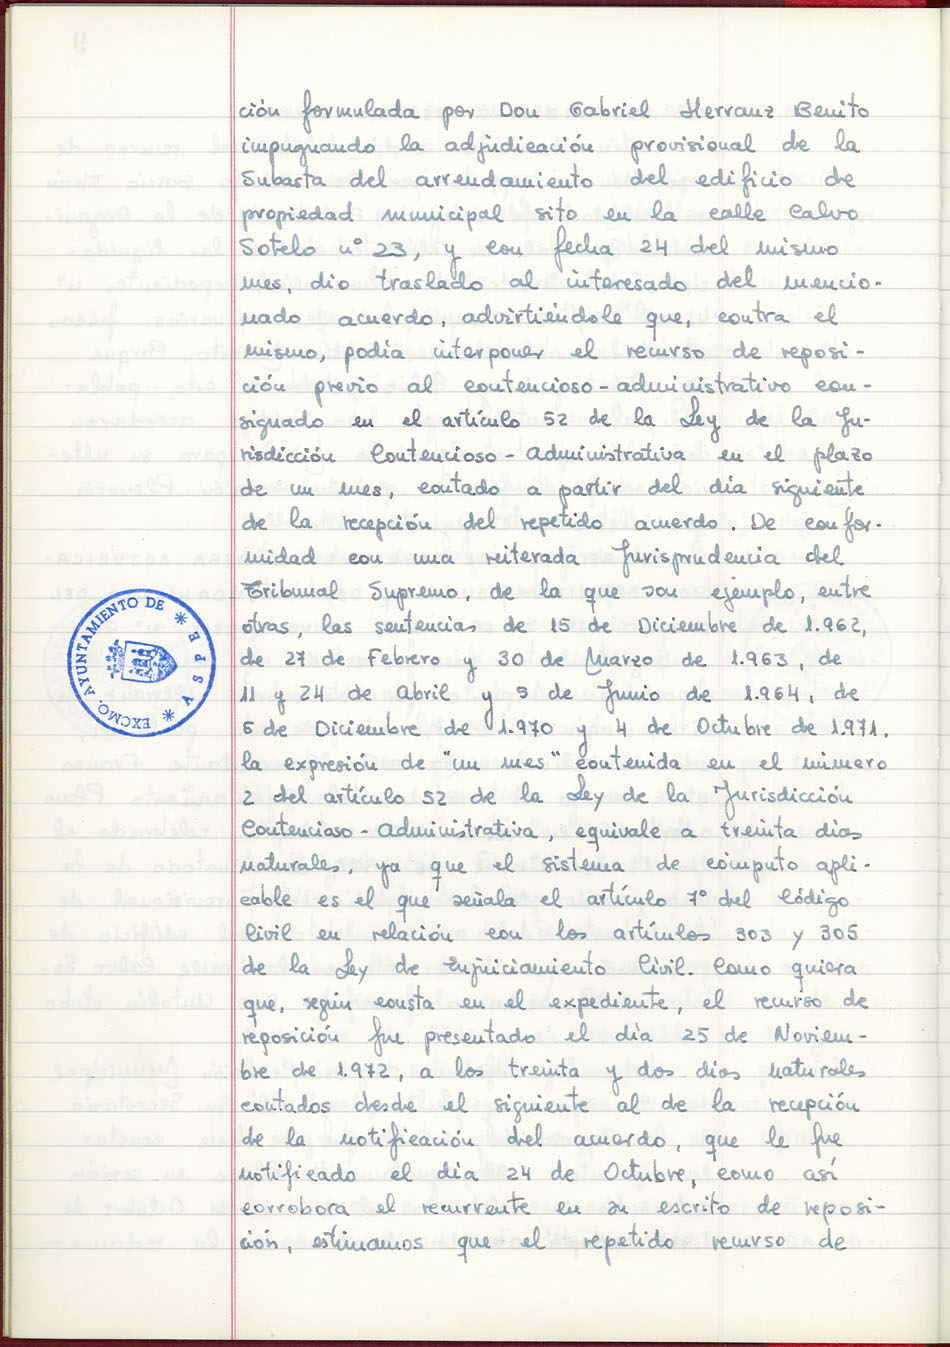 ción formulada por Don Gabriel Herranz Benito
impugnando la adjudicación provisional de la
Subasta del arrendamiento del edificio de
propiedad municipal sito en la calle Calvo
Sotelo nº 23, y con fecha 24 del mismo
mes, dio traslado al interesado del mencio-
nado acuerdo, advirtiéndole que, contra el
mismo, podía interponer el recurso de reposi-
ción previo al contencioso-administrativo con-
signado en el artículo 52 de la Ley de la Ju-
risdicción Contencioso-Administrativa en el plazo
de un mes, contado a partir del día siguiente
de la recepción del repetido acuerdo. De confor-
midad con una reiterada Jurisprudencia del
Tribunal Supremo, de la que son ejemplo, entre
otras, las sentencias de 15 de Diciembre de 1.962,
de 27 de Febrero y 30 de Marzo de 1.963, de
11 y 24 de Abril y 5 de Junio de 1.964, de
6 de Diciembre de 1.970 y 4 de Octubre de 1.971,
la expresión de "un mes" contenida en el número
2 del artículo 52 de la Ley de la Jurisdicción
Contencioso-Administrativa, equivale a treinta días
naturales, ya que el sistema de cómputo apli-
cable es el que señala el artículo 7º del Código
Civil en relación con los artículos 303 y 305
de la Ley de Enjuiciamiento Civil. Como quiera
que, según consta en el expediente, el recurso de
reposición fue presentado el día 25 de Noviem-
bre de 1.972, a los treinta y dos días naturales
contados desde el siguiente al de la recepción
de la notificación del acuerdo, que le fue
notificado el día 24 de Octubre, como así
corrobora el recurrente en su escrito de reposi-
ción, estimamos que el repetido recurso de
EXCMO. AYUNTAMIENTO DE * E S P E * A S V *